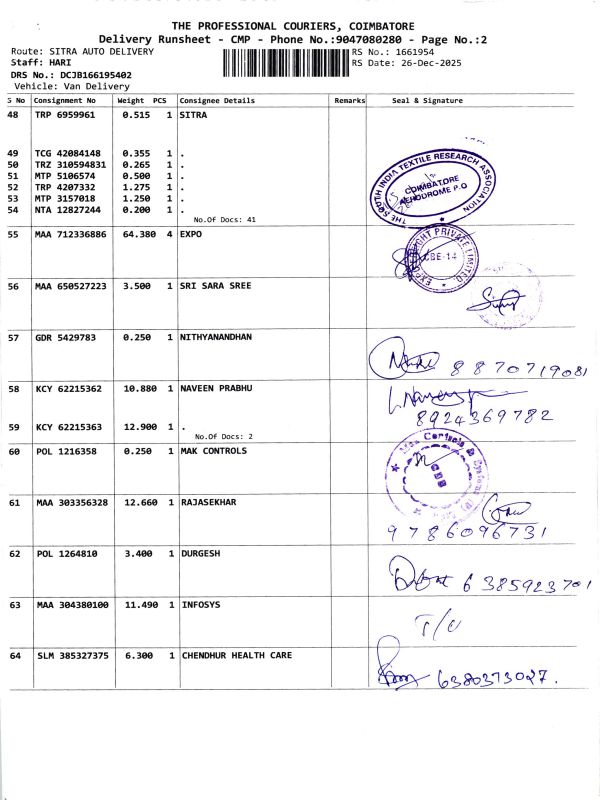 THE PROFESSIONAL COURIERS, COIMBATORE
Delivery Runsheet - CMP - Phone No.:9047080280 - Page No.:2
Route: SITRA AUTO DELIVERY
RS No.: 1661954
Staff: HARI
RS Date: 26-Dec-2025
DRS No.: DCJB166195402
Vehicle: Van Delivery
S No Consignment No Weight PCS Consignee Details Remarks Seal & Signature
48 TRP 6959961 0.515 1 SITRA
49 TCG 42084148 0.355 1 .
50 TRZ 310594831 0.265 1 .
51 MTP 5106574 0.500 1 .
52 TRP 4207332 1.275 1 .
53 MTP 3157018 1.250 1 .
54 NTA 12827244 0.200 1 .
No.Of Docs: 41
THE SOUTH INDIA TEXTILE RESEARCH ASSOCIATION
COIMBATORE
AERODROME P.O
55 MAA 712336886 64.380 4 EXPO
PRIVATE LIMITED
CBE-14
56 MAA 650527223 3.500 1 SRI SARA SREE
57 GDR 5429783 0.250 1 NITHYANANDHAN
8870719081
58 KCY 62215362 10.880 1 NAVEEN PRABHU
8924369782
59 KCY 62215363 12.900 1 .
No.Of Docs: 2
60 POL 1216358 0.250 1 MAK CONTROLS
61 MAA 303356328 12.660 1 RAJASEKHAR
9786096731
62 POL 1264810 3.400 1 DURGESH
6385923701
63 MAA 304380100 11.490 1 INFOSYS
64 SLM 385327375 6.300 1 CHENDHUR HEALTH CARE
6380373027.